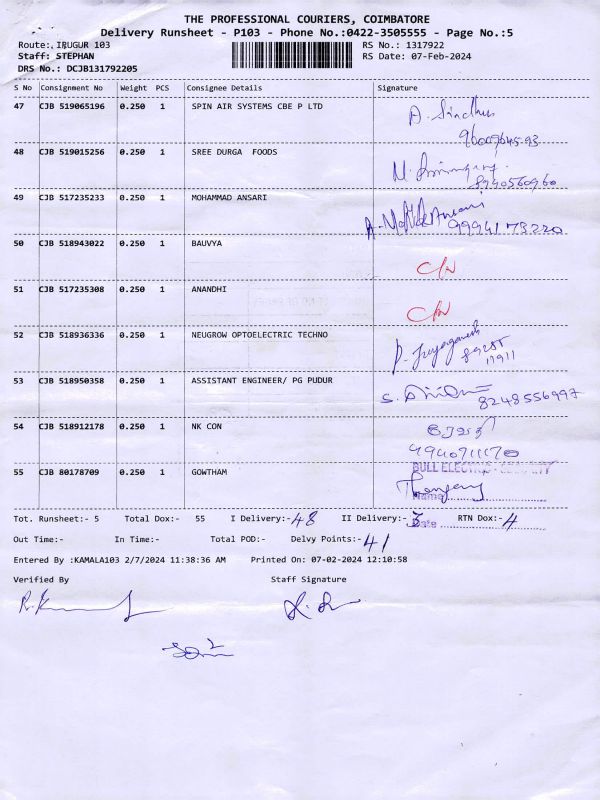 THE PROFESSIONAL COURIERS, COIMBATORE
Delivery Runsheet - P103 - Phone No.:0422-3505555 - Page No.:5
Route: IRUGUR 103 RS No.: 1317922
Staff: STEPHAN RS Date: 07-Feb-2024
DRS No.: DCJB131792205
S No Consignment No Weight PCS Consignee Details Signature
47 CJB 519065196 0.250 1 SPIN AIR SYSTEMS CBE P LTD A. Sindhu
9600964593
48 CJB 519015256 0.250 1 SREE DURGA FOODS
8940560960
49 CJB 517235233 0.250 1 MOHAMMAD ANSARI
9994173220
50 CJB 518943022 0.250 1 BAUVYA C/N
51 CJB 517235308 0.250 1 ANANDHI C/N
52 CJB 518936336 0.250 1 NEUGROW OPTOELECTRIC TECHNO
89255
11911
53 CJB 518950358 0.250 1 ASSISTANT ENGINEER/ PG PUDUR
8248556997
54 CJB 518912178 0.250 1 NK CON
9940711170
BULL ELECTRIC
55 CJB 80178709 0.250 1 GOWTHAM
Name
Tot. Runsheet:- 5 Total Dox:- 55 I Delivery:- 48 II Delivery:- 3 RTN Dox:- 4
Date
Out Time:- In Time:- Total POD:- Delvy Points:- 41
Entered By :KAMALA103 2/7/2024 11:38:36 AM Printed On: 07-02-2024 12:10:58
Verified By Staff Signature